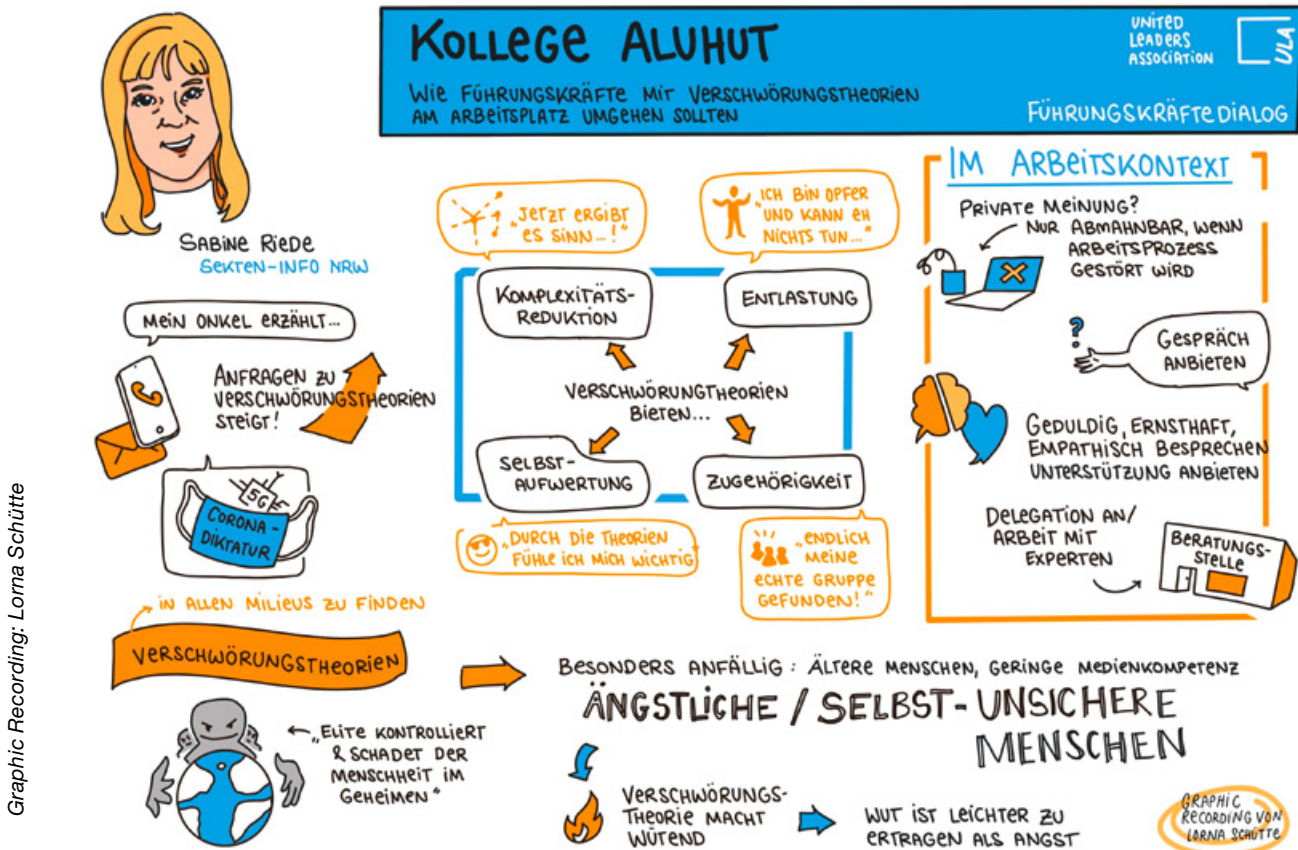 KOLLEGE ALUHUT
WIE FÜHRUNGSKRÄFTE MIT VERSCHWÖRUNGSTHEORIEN
AM ARBEITSPLATZ UMGEHEN SOLLTEN
UNITED
LEADERS
ASSOCIATION
ULA
FÜHRUNGSKRÄFTEDIALOG
SABINE RIEDE
SEKTEN-INFO NRW
MEIN ONKEL ERZÄHLT...
ANFRAGEN ZU
VERSCHWÖRUNGSTHEORIEN
STEIGT!
5G
CORONA-
DIKTATUR
IN ALLEN MILIEUS ZU FINDEN
VERSCHWÖRUNGSTHEORIEN
„ELITE KONTROLLIERT
& SCHADET DER
MENSCHHEIT IM
GEHEIMEN"
„JETZT ERGIBT
ES SINN...!"
„ICH BIN OPFER
UND KANN EH
NICHTS TUN..."
KOMPLEXITÄTS-
REDUKTION
ENTLASTUNG
VERSCHWÖRUNGTHEORIEN
BIETEN...
SELBST-
AUFWERTUNG
ZUGEHÖRIGKEIT
„DURCH DIE THEORIEN
FÜHLE ICH MICH WICHTIG"
„ENDLICH
MEINE
ECHTE GRUPPE
GEFUNDEN!"
IM ARBEITSKONTEXT
PRIVATE MEINUNG?
NUR ABMAHNBAR, WENN
ARBEITSPROZESS
GESTÖRT WIRD
?
GESPRÄCH
ANBIETEN
GEDULDIG, ERNSTHAFT,
EMPATHISCH BESPRECHEN
UNTERSTÜTZUNG ANBIETEN
DELEGATION AN/
ARBEIT MIT
EXPERTEN
BERATUNGS-
STELLE
BESONDERS ANFÄLLIG: ÄLTERE MENSCHEN, GERINGE MEDIENKOMPETENZ
ÄNGSTLICHE / SELBST-UNSICHERE
MENSCHEN
VERSCHWÖRUNGS-
THEORIE MACHT
WÜTEND
WUT IST LEICHTER ZU
ERTRAGEN ALS ANGST
GRAPHIC
RECORDING VON
LORNA SCHÜTTE
Graphic Recording: Lorna Schütte